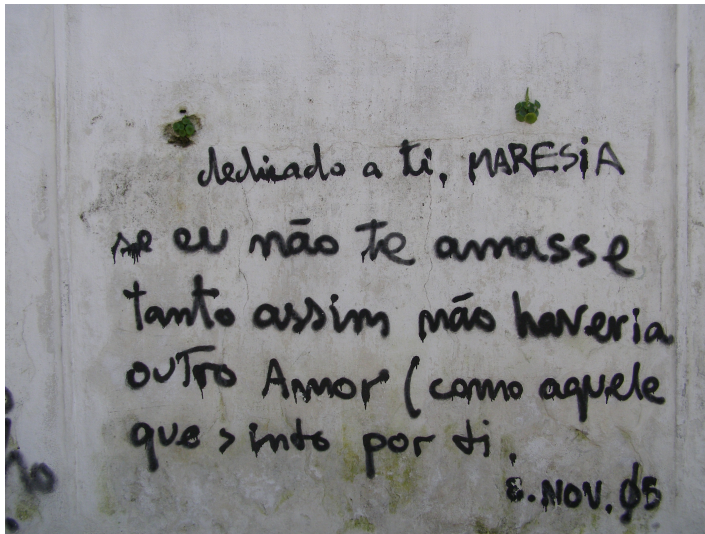 dedicado a ti, MARESiA
se eu não te amasse
tanto assim não haveria
outro Amor (como aquele
que sinto por ti.
NOV. Ø5